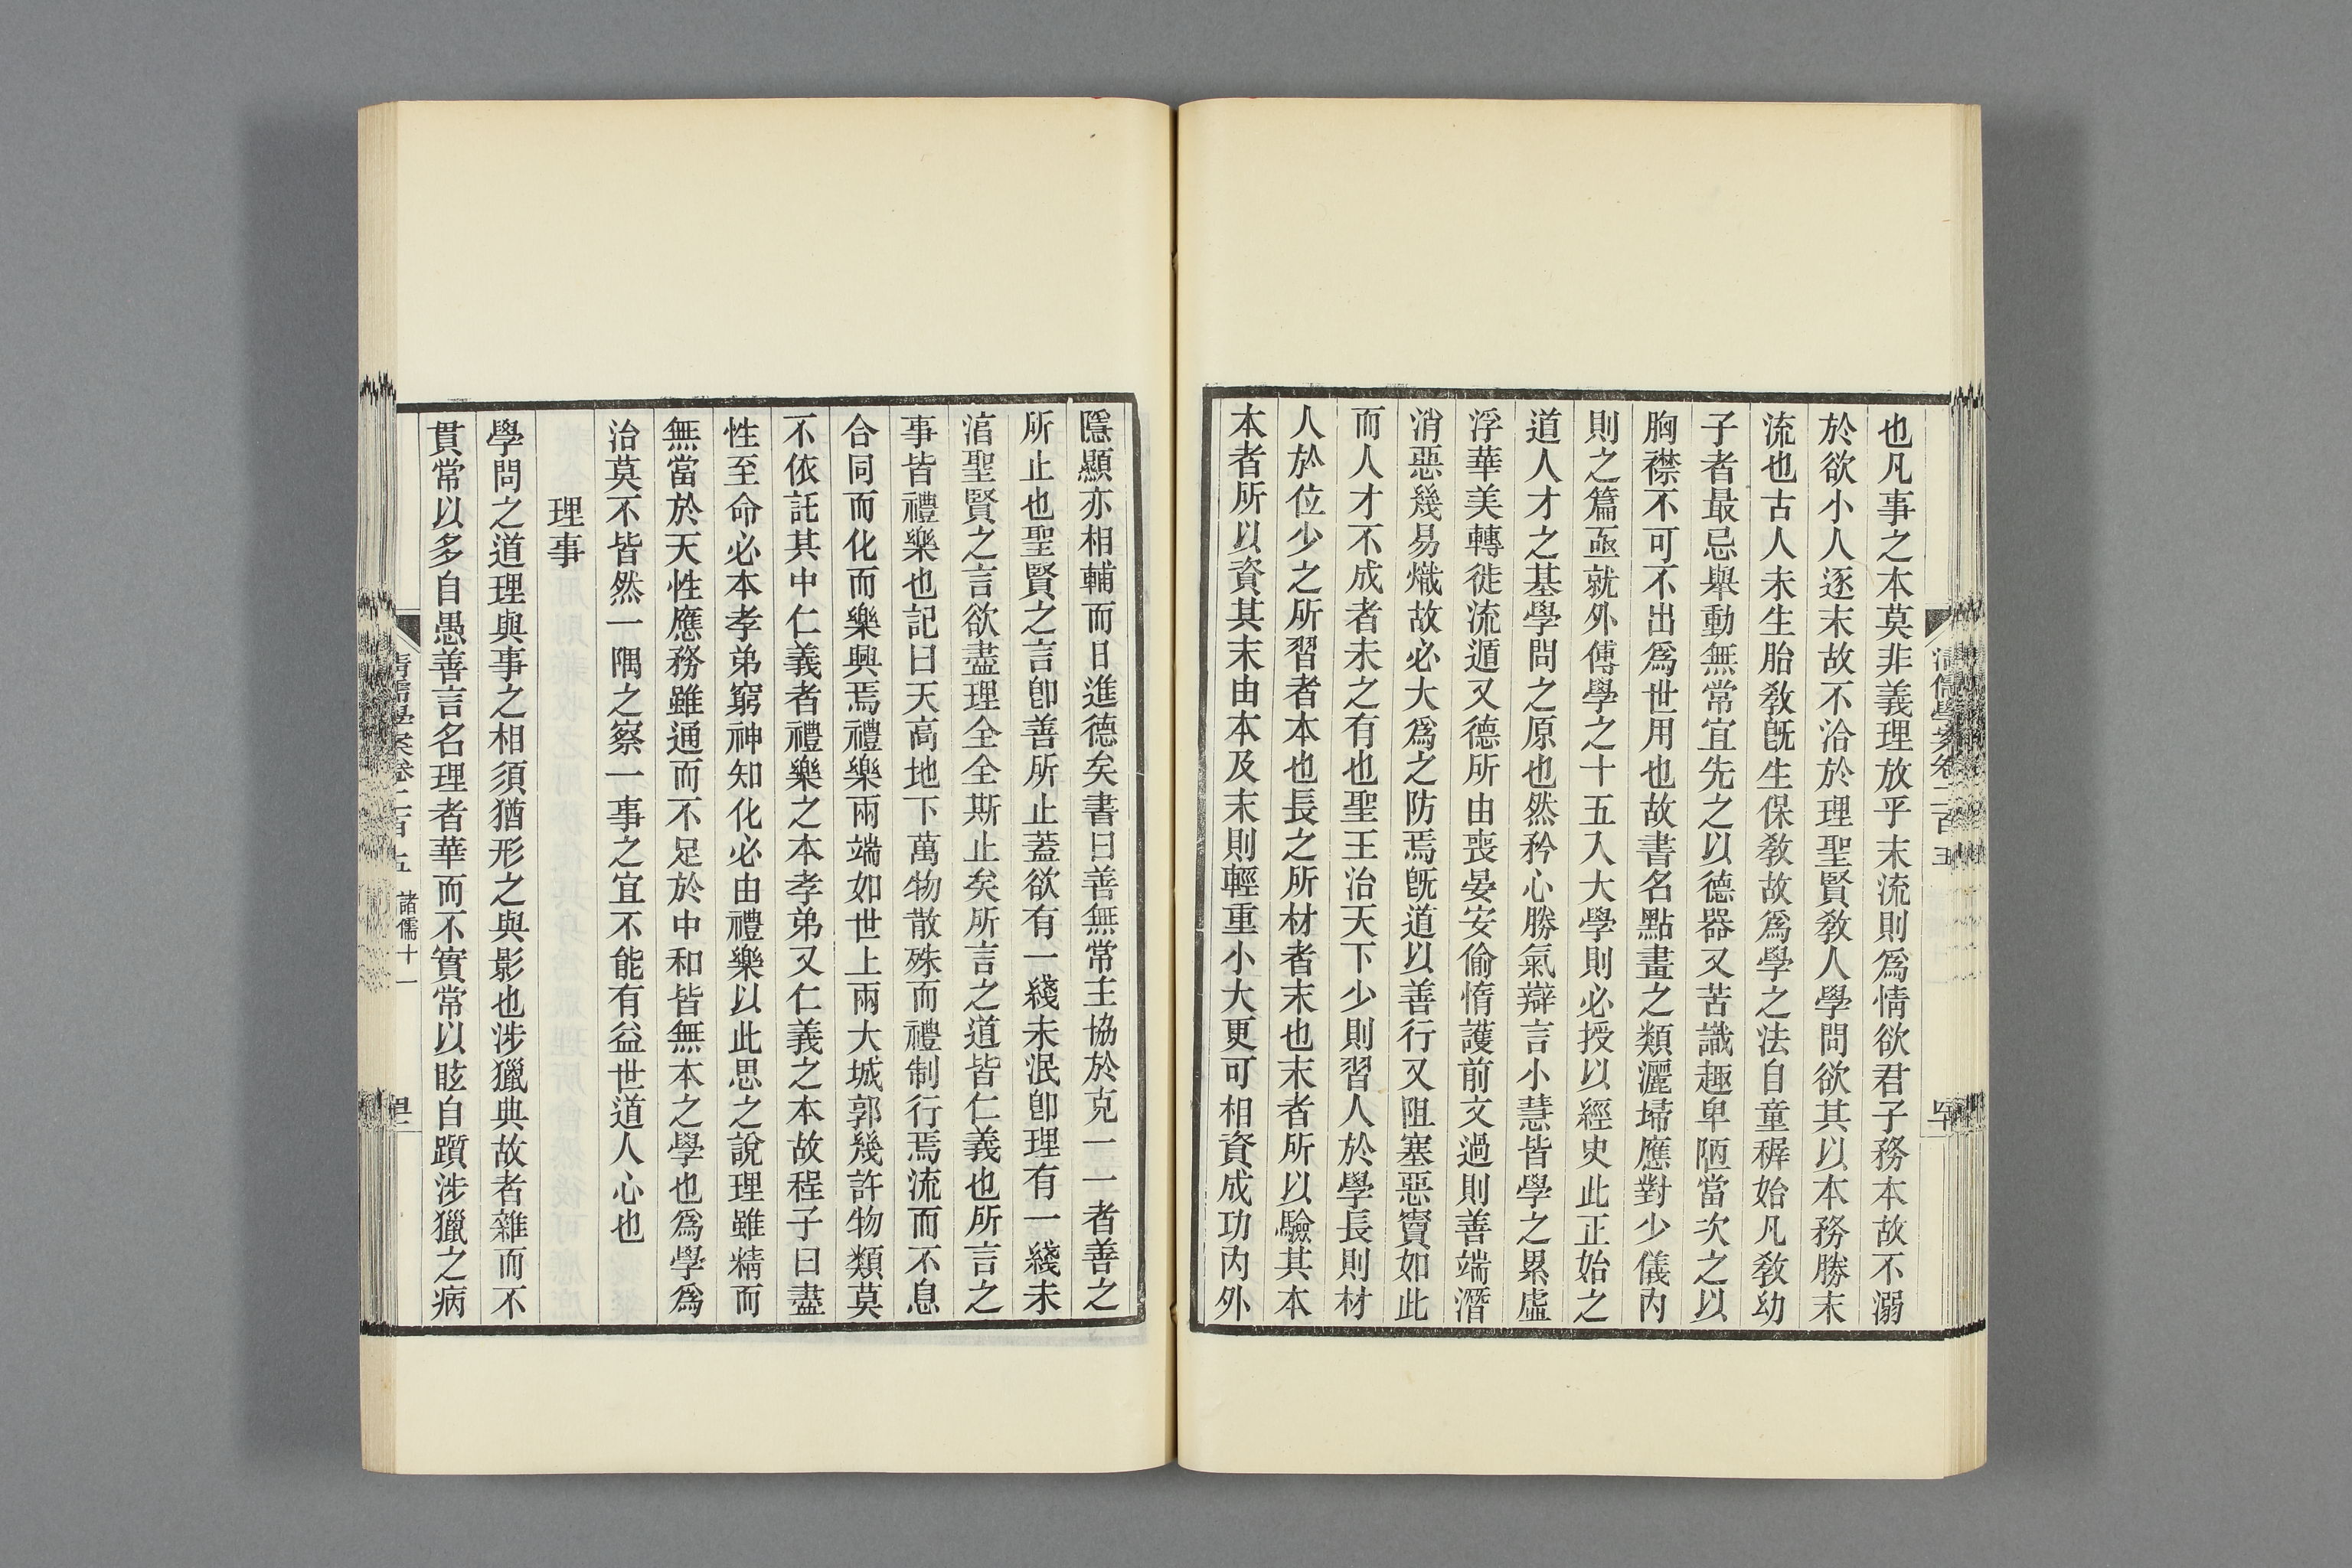 也凡事之本莫非義理放乎末流則爲情欲君子務本故不溺
於欲小人逐末故不洽於理聖賢敎人學問欲其以本務勝末
流也古人未生胎敎旣生保敎故爲學之法自童穉始凡敎幼
子者最忌舉動無常宜先之以德器又苦識趣卑陋當次之以
胸襟不可不出爲世用也故書名點畫之類灑埽應對少儀內
則之篇亟就外傅學之十五入大學則必授以經史此正始之
道人才之基學問之原也然矜心勝氣辯言小慧皆學之累虛
浮華美轉徙流遁又德所由喪晏安偷惰護前文過則善端潛
消惡幾易熾故必大爲之防焉旣道以善行又阻塞惡竇如此
而人才不成者未之有也聖王治天下少則習人於學長則材
人於位少之所習者本也長之所材者末也末者所以驗其本
本者所以資其末由本及末則輕重小大更可相資成功內外
隱顯亦相輔而日進德矣書曰善無常主協於克一一者善之
所止也聖賢之言卽善所止蓋欲有一綫未泯卽理有一綫未
涫聖賢之言欲盡理全全斯止矣所言之道皆仁義也所言之
事皆禮樂也記曰天高地下萬物散殊而禮制行焉流而不息
合同而化而樂興焉禮樂兩端如世上兩大城郭幾許物類莫
不依託其中仁義者禮樂之本孝弟又仁義之本故程子曰盡
性至命必本孝弟窮神知化必由禮樂以此思之說理雖精而
無當於天性應務雖通而不足於中和皆無本之學也爲學爲
治莫不皆然一隅之察一事之宜不能有益世道人心也
理事
學問之道理與事之相須猶形之與影也涉獵典故者雜而不
貫常以多自愚善言名理者華而不實常以眩自躓涉獵之病
清儒學案卷二百五 諸儒十一